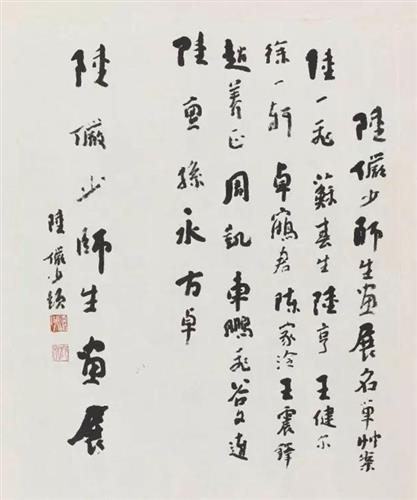 陸儼少師生畫展名單艸案
陸一飛 蘇春生 陸亨 王健尔
徐一軒 卓鶴君 陈家泠 王震鐸
趙养正 周凱 車鵬飛 谷文達
陸亶 孫永 方卓
陸儼少師生畫展
陸儼少題